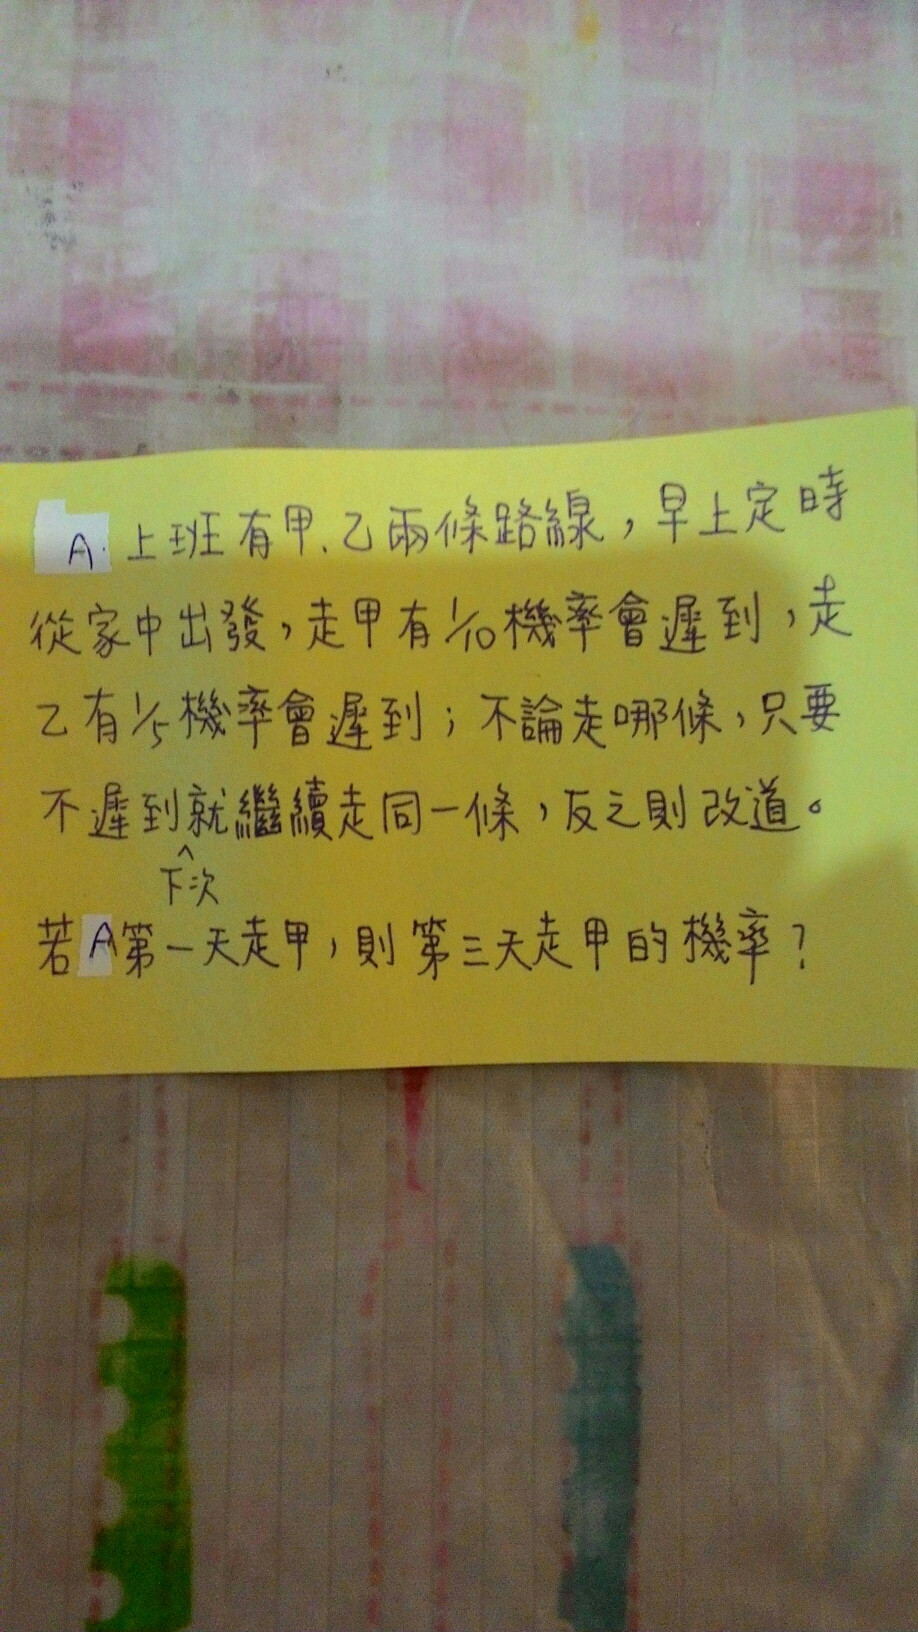 A.上班有甲、乙兩條路線，早上定時
從家中出發，走甲有1/10機率會遲到，走
乙有1/5機率會遲到；不論走哪條，只要
不遲到就繼續走同一條，反之則改道。
下次
若A第一天走甲，則第三天走甲的機率？